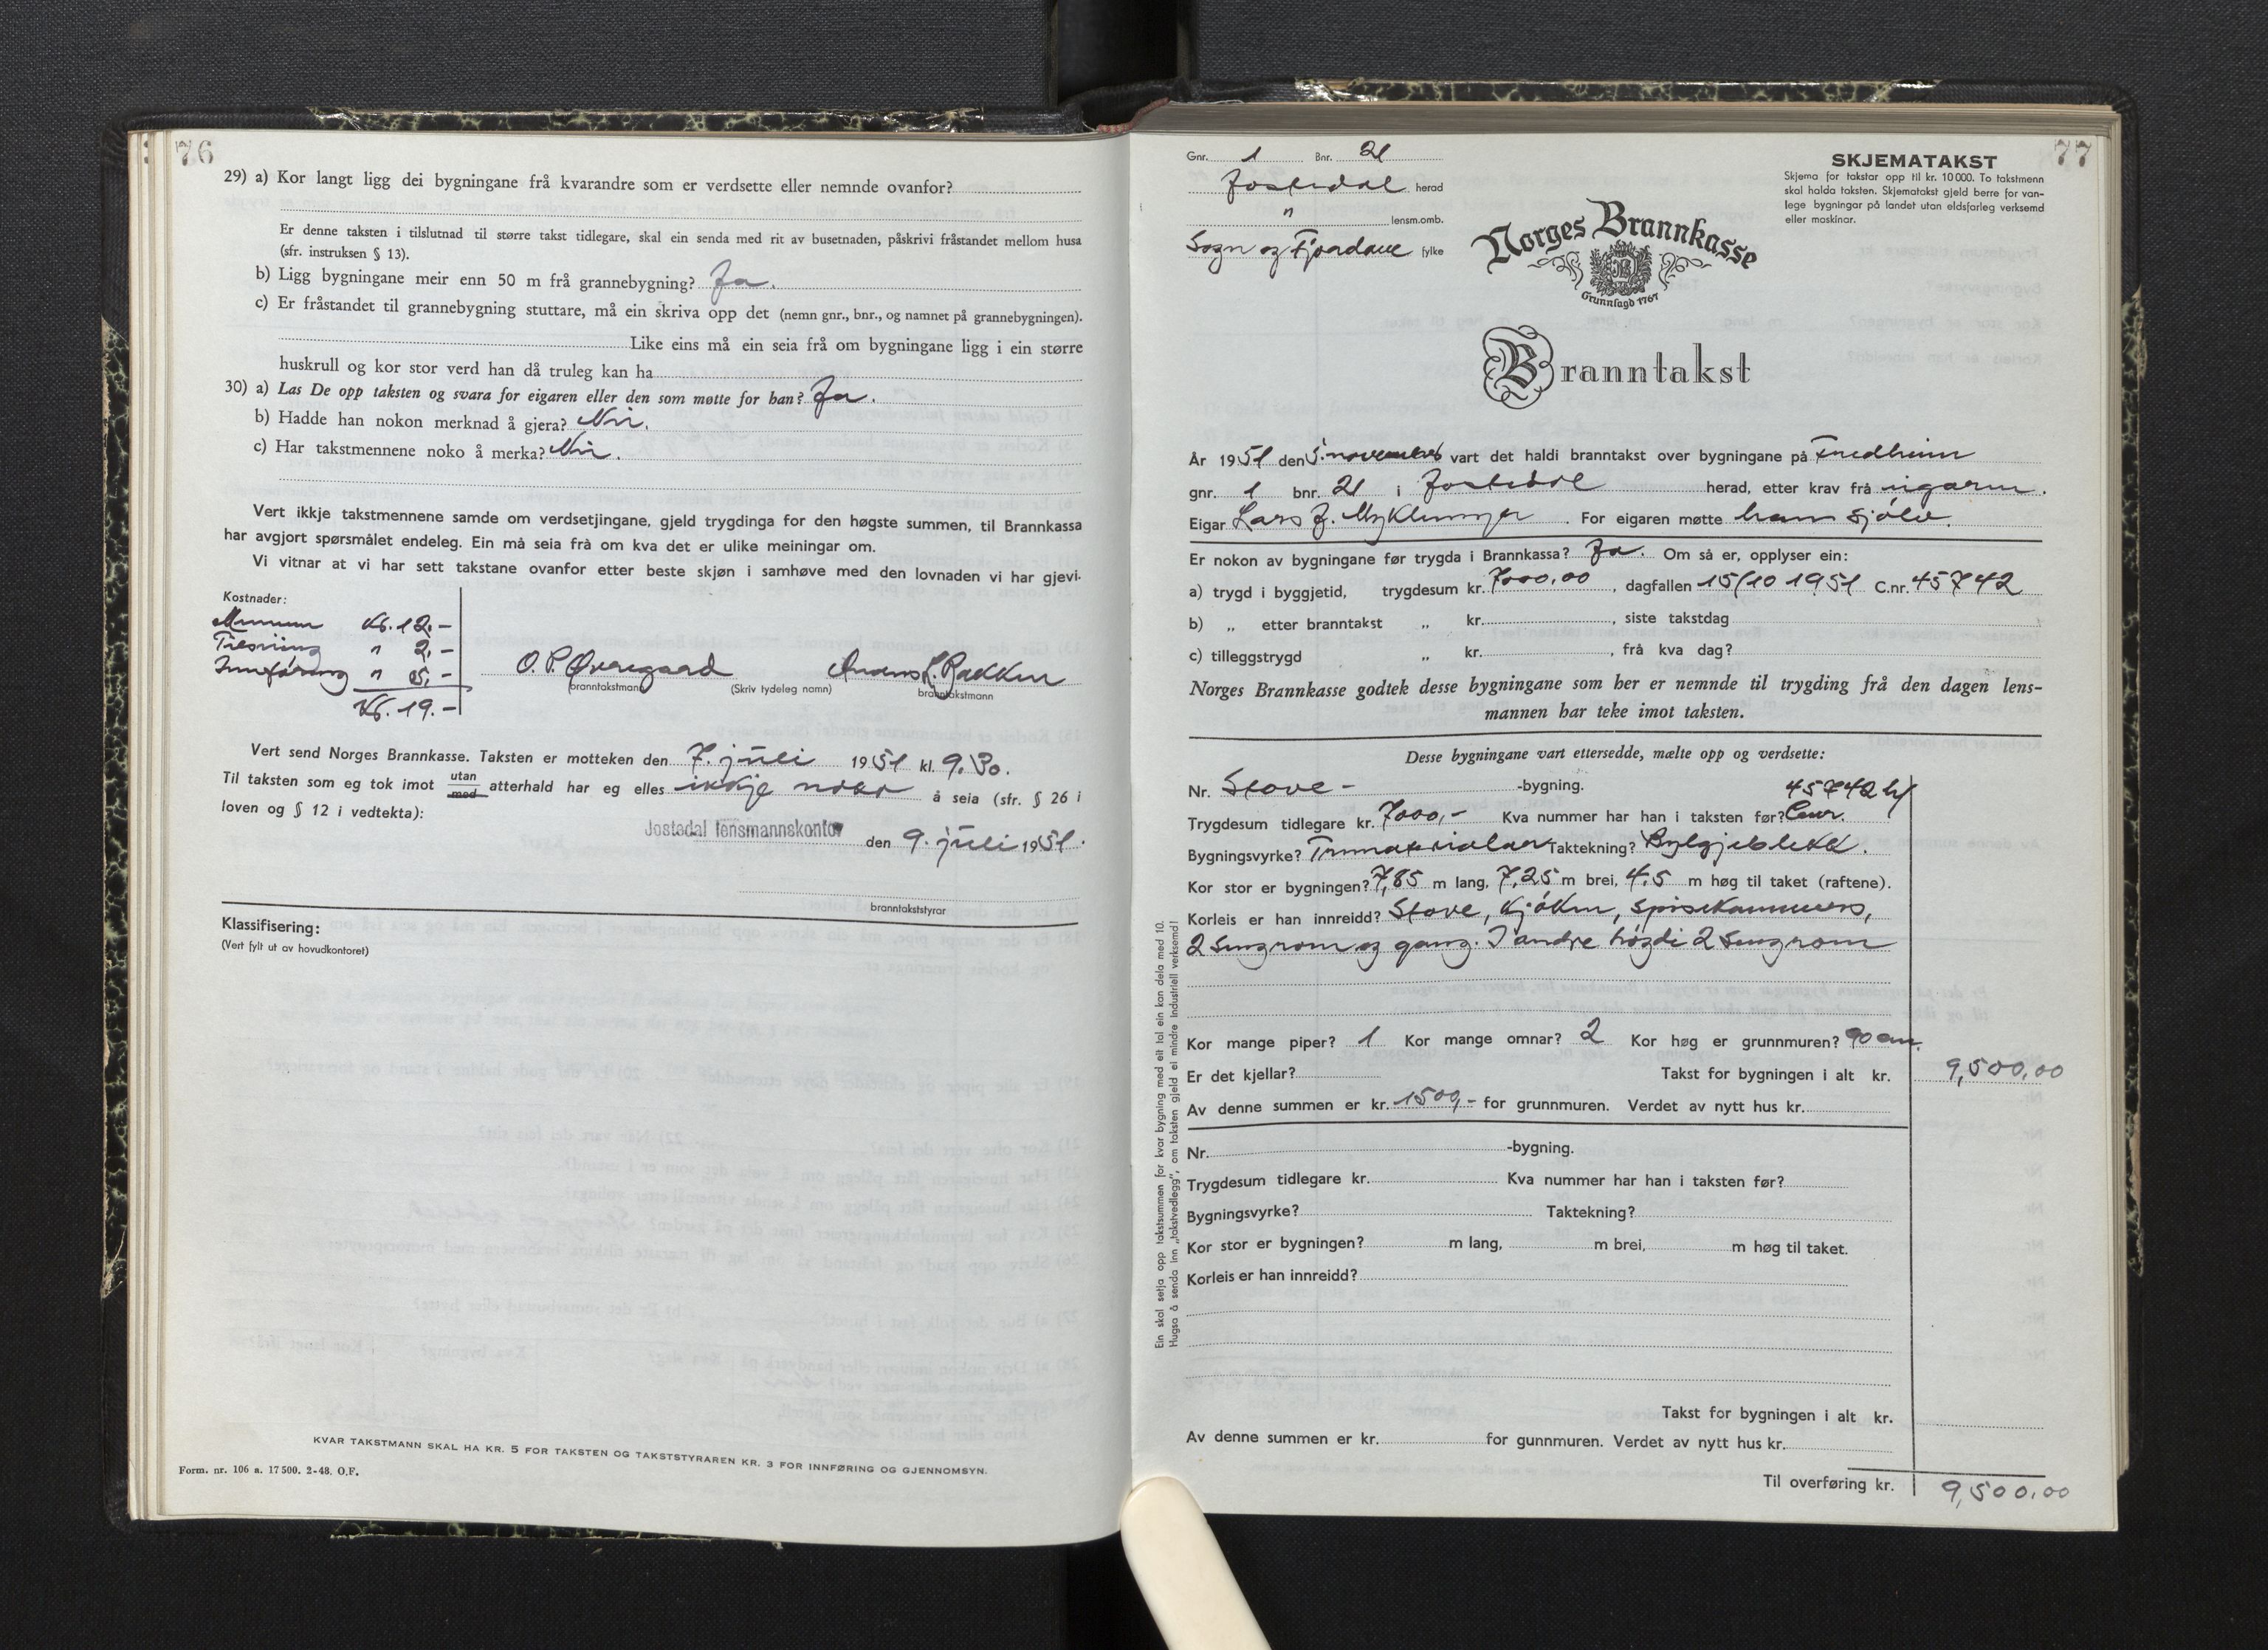 76
29) a) Kor langt ligg dei bygningane frå kvarandre som er verdsette eller nemnde ovanfor?
Er denne taksten i tilslutnad til større takst tidlegare, skal ein senda med rit av busetnaden, påskrivi fråstandet mellom husa
(sfr. instruksen § 13).
b) Ligg bygningane meir enn 50 m frå grannebygning? Ja.
c) Er fråstandet til grannebygning stuttare, må ein skriva opp det (nemn gnr., bnr., og namnet på grannebygningen).
Like eins må ein seia frå om bygningane ligg i ein større
huskrull og kor stor verd han då truleg kan ha
30) a) Las De opp taksten og svara for eigaren eller den som møtte for han? Ja.
b) Hadde han nokon merknad å gjera? Nei.
c) Har takstmennene noko å merka? Nei.
Vert ikkje takstmennene samde om verdsetjingane, gjeld trygdinga for den høgste summen, til Brannkassa
har avgjort spørsmålet endeleg. Ein må seia frå om kva det er ulike meiningar om.
Vi vitnar at vi har sett takstane ovanfor etter beste skjøn i samhøve med den lovnaden vi har gjevi.
Kostnader:
Kr. 12,-
" 2,-
Innføring " 5,-
Kr. 19.-
O. P. Øvregaard
branntakstmann
(Skriv tydeleg namn)
branntakstmann
Vert send Norges Brannkasse. Taksten er motteken den 7. juli 1951 kl. 9.30.
Til taksten som eg tok imot utan med atterhald har eg elles ikkje noko å seia (sfr. § 26 i
loven og § 12 i vedtekta):
Jostedal lensmannskontor den 9. juli 1951.
branntakststyrar
Klassifisering:
(Vert fylt ut av hovudkontoret)
KVAR TAKSTMANN SKAL HA KR. 5 FOR TAKSTEN OG TAKSTSTYRAREN KR. 3 FOR INNFØRING OG GJENNOMSYN.
Form. nr. 106 a. 17 500. 2-48. O.F.
77
Gnr. 1 Bnr. 21
Jostedal herad
" lensm.omb.
Sogn og Fjordane fylke
SKJEMATAKST
Skjema for takstar opp til kr. 10 000. To takstmenn
skal halda taksten. Skjematakst gjeld berre for van-
lege bygningar på landet utan eldsfarleg verksemd
eller maskinar.
Norges Brannkasse
Grunnlagd 1767
Branntakst
År 1951 den 5. november vart det haldi branntakst over bygningane på Fredheim
gnr. 1 bnr. 21 i Jostedal herad, etter krav frå eigaren.
Eigar Lars J. Myklemyr. For eigaren møtte han sjølv.
Er nokon av bygningane før trygda i Brannkassa? Ja. Om så er, opplyser ein:
a) trygd i byggjetid, trygdesum kr. 7000,00, dagfallen 15/10 1951 C.nr. 45742
b) „ etter branntakst „ kr. , siste takstdag
c) tilleggstrygd „ kr. , frå kva dag?
Norges Brannkasse godtek desse bygningane som her er nemnde til trygding frå den dagen lens-
mannen har teke imot taksten.
Desse bygningane vart ettersedde, mælte opp og verdsette:
Nr. Stove - -bygning.
45742
Trygdesum tidlegare kr. 7000,- Kva nummer har han i taksten før?
Bygningsvyrke? Trematerialar Taktekning? Bylgjeblekk.
Kor stor er bygningen? 7,85 m lang, 7,25 m brei, 4,5 m høg til taket (raftene).
Korleis er han innreidd? Stove, kjøken, spisekammers,
2 sengrom og gang. I andre høgdi 2 sengrom
Kor mange piper? 1 Kor mange omnar? 2 Kor høg er grunnmuren? 90 cm.
Er det kjellar? Takst for bygningen i alt kr. 9,500,00
Av denne summen er kr. 1500,- for grunnmuren. Verdet av nytt hus kr.
Nr. -bygning.
Trygdesum tidlegare kr. Kva nummer har han i taksten før?
Bygningsvyrke? Taktekning?
Kor stor er bygningen? m lang, m brei, m høg til taket.
Korleis er han innreidd?
Takst for bygningen i alt kr.
Av denne summen er kr. for gunnmuren. Verdet av nytt hus kr.
Til overføring kr. 9,500,00
Ein skal setja opp takstsummen for kvar bygning med eit tal ein kan dela med 10.
Hugsa å senda inn „takstvedlegg", om taksten gjeld ei mindre industriell verksemd!